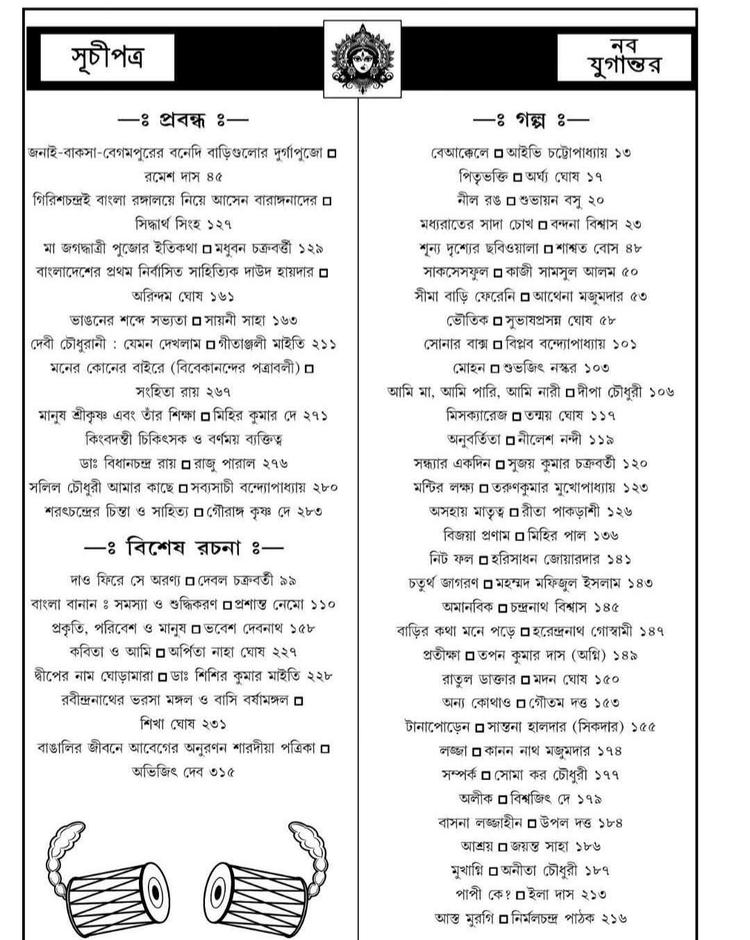 সূচীপত্র
নব
যুগান্তর
—ঃ প্রবন্ধ ঃ—
জনাই-বাকসা-বেগমপুরের বনেদি বাড়িগুলোর দুর্গাপুজো □
রমেশ দাস ৪৫
গিরিশচন্দ্রই বাংলা রঙ্গালয়ে নিয়ে আসেন বারাঙ্গনাদের □
সিদ্ধার্থ সিংহ ১২৭
মা জগদ্ধাত্রী পুজোর ইতিকথা □ মধুবন চক্রবর্ত্তী ১২৯
বাংলাদেশের প্রথম নির্বাসিত সাহিত্যিক দাউদ হায়দার □
অরিন্দম ঘোষ ১৬১
ভাঙনের শব্দে সভ্যতা □ সায়নী সাহা ১৬৩
দেবী চৌধুরানী : যেমন দেখলাম □ গীতাঞ্জলী মাইতি ২১১
মনের কোনের বাইরে (বিবেকানন্দের পত্রাবলী) □
সংহিতা রায় ২৬৭
মানুষ শ্রীকৃষ্ণ এবং তাঁর শিক্ষা □ মিহির কুমার দে ২৭১
কিংবদন্তী চিকিৎসক ও বর্ণময় ব্যক্তিত্ব
ডাঃ বিধানচন্দ্র রায় □ রাজু পারাল ২৭৬
সলিল চৌধুরী আমার কাছে □ সব্যসাচী বন্দ্যোপাধ্যায় ২৮০
শরৎচন্দ্রের চিন্তা ও সাহিত্য □ গৌরাঙ্গ কৃষ্ণ দে ২৮৩
—ঃ বিশেষ রচনা ঃ—
দাও ফিরে সে অরণ্য □ দেবল চক্রবর্তী ৯৯
বাংলা বানান ঃ সমস্যা ও শুদ্ধিকরণ □ প্রশান্ত নেমো ১১০
প্রকৃতি, পরিবেশ ও মানুষ □ ভবেশ দেবনাথ ১৫৮
কবিতা ও আমি □ অর্পিতা নাহা ঘোষ ২২৭
দ্বীপের নাম ঘোড়ামারা □ ডাঃ শিশির কুমার মাইতি ২২৮
রবীন্দ্রনাথের ভরসা মঙ্গল ও বাসি বর্ষামঙ্গল □
শিখা ঘোষ ২৩১
বাঙালির জীবনে আবেগের অনুরণন শারদীয়া পত্রিকা □
অভিজিৎ দেব ৩১৫
—ঃ গল্প ঃ—
বেআক্কেলে □ আইভি চট্টোপাধ্যায় ১৩
পিতৃভক্তি □ অর্ঘ্য ঘোষ ১৭
নীল রঙ □ শুভায়ন বসু ২০
মধ্যরাতের সাদা চোখ □ বন্দনা বিশ্বাস ২৩
শূন্য দৃশ্যের ছবিওয়ালা □ শাশ্বত বোস ৪৮
সাকসেসফুল □ কাজী সামসুল আলম ৫০
সীমা বাড়ি ফেরেনি □ আথেনা মজুমদার ৫৩
ভৌতিক □ সুভাষপ্রসন্ন ঘোষ ৫৮
সোনার বাক্স □ বিপ্লব বন্দ্যোপাধ্যায় ১০১
মোহন □ শুভজিৎ নস্কর ১০৩
আমি মা, আমি পারি, আমি নারী □ দীপা চৌধুরী ১০৬
মিসক্যারেজ □ তন্ময় ঘোষ ১১৭
অনুবর্তিতা □ নীলেশ নন্দী ১১৯
সন্ধ্যার একদিন □ সুজয় কুমার চক্রবর্তী ১২০
মন্টির লক্ষ্য □ তরুণকুমার মুখোপাধ্যায় ১২৩
অসহায় মাতৃত্ব □ রীতা পাকড়াশী ১২৬
বিজয়া প্রণাম □ মিহির পাল ১৩৬
নিট ফল □ হরিসাধন জোয়ারদার ১৪১
চতুর্থ জাগরণ □ মহম্মদ মফিজুল ইসলাম ১৪৩
অমানবিক □ চন্দ্রনাথ বিশ্বাস ১৪৫
বাড়ির কথা মনে পড়ে □ হরেন্দ্রনাথ গোস্বামী ১৪৭
প্রতীক্ষা □ তপন কুমার দাস (অগ্নি) ১৪৯
রাতুল ডাক্তার □ মদন ঘোষ ১৫০
অন্য কোথাও □ গৌতম দত্ত ১৫৩
টানাপোড়েন □ সান্তনা হালদার (সিকদার) ১৫৫
লজ্জা □ কানন নাথ মজুমদার ১৭৪
সম্পর্ক □ সোমা কর চৌধুরী ১৭৭
অলীক □ বিশ্বজিৎ দে ১৭৯
বাসনা লজ্জাহীন □ উপল দত্ত ১৮৪
আশ্রয় □ জয়ন্ত সাহা ১৮৬
মুখাগ্নি □ অনীতা চৌধুরী ১৮৭
পাপী কে? □ ইলা দাস ২১৩
আস্ত মুরগি □ নির্মলচন্দ্র পাঠক ২১৬